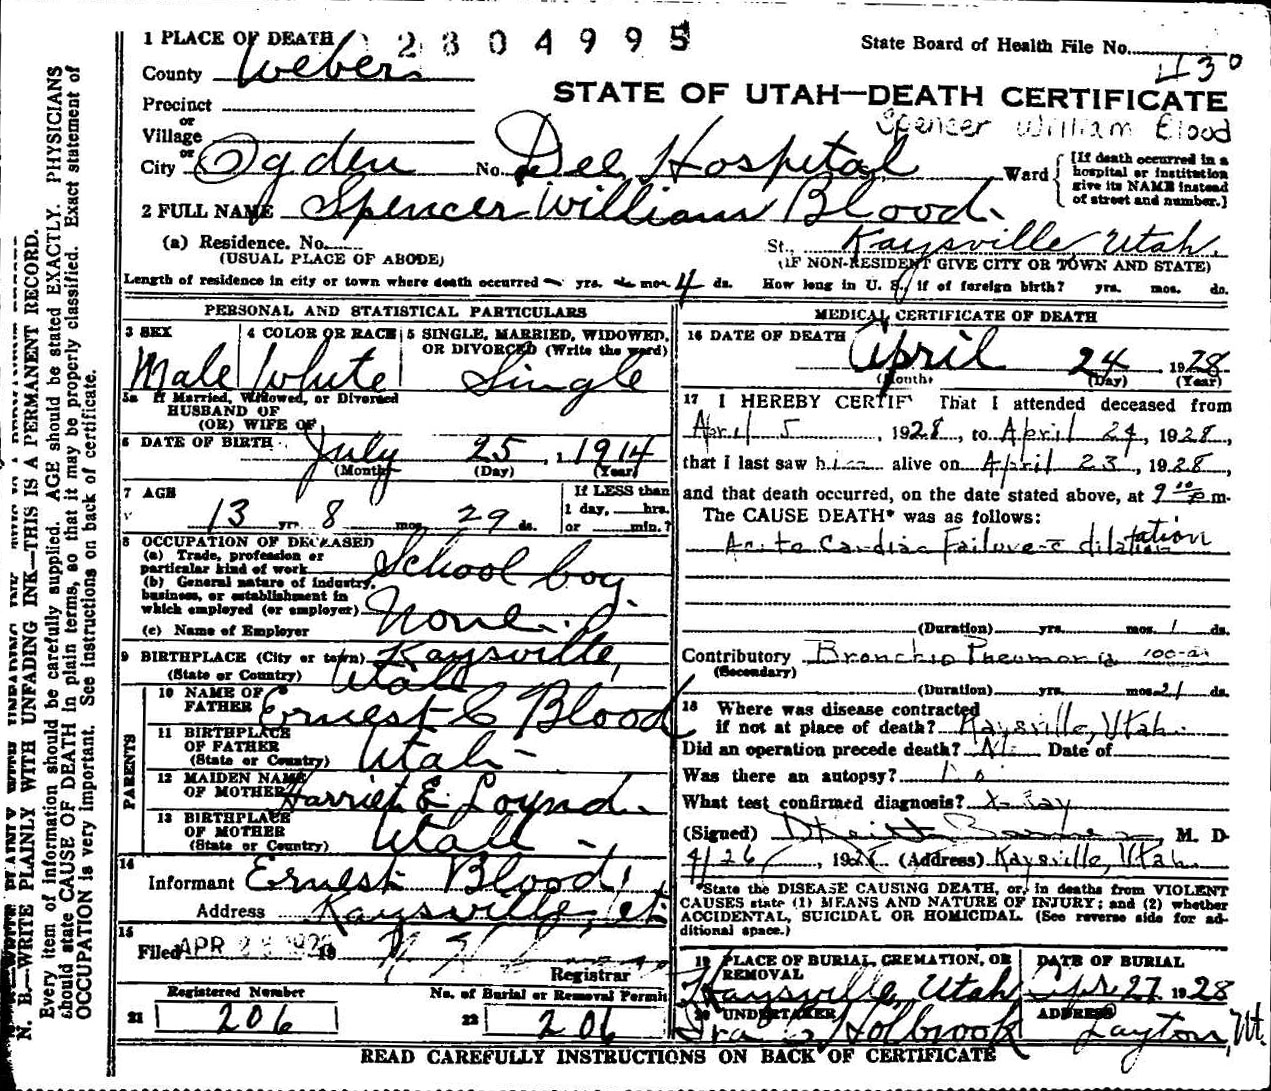 1 PLACE OF DEATH 2804995
State Board of Health File No. 430
County Weber
STATE OF UTAH—DEATH CERTIFICATE
Precinct
or
Spencer William Blood
Village
or
City Ogden No. Dee Hospital Ward
[If death occurred in a hospital or institution give its NAME instead of street and number.]
2 FULL NAME Spencer William Blood.
(a) Residence. No. St., Kaysville Utah.
(USUAL PLACE OF ABODE) (IF NON-RESIDENT GIVE CITY OR TOWN AND STATE)
Length of residence in city or town where death occurred — yrs. — mos. 4 ds. How long in U. S., if of foreign birth? yrs. mos. ds.
PERSONAL AND STATISTICAL PARTICULARS
3 SEX Male
4 COLOR OR RACE White
5 SINGLE, MARRIED, WIDOWED, OR DIVORCED (Write the word) Single
5a If Married, Widowed, or Divorced
HUSBAND OF
(OR) WIFE OF
6 DATE OF BIRTH July 25, 1914
(Month) (Day) (Year)
7 AGE 13 yrs. 8 mos. 29 ds.
If LESS than
1 day, hrs.
or min.?
8 OCCUPATION OF DECEASED
(a) Trade, profession or
particular kind of work School boy.
(b) General nature of industry,
business, or establishment in
which employed (or employer) None.
(c) Name of Employer
9 BIRTHPLACE (City or town) Kaysville,
(State or Country) Utah
PARENTS
10 NAME OF
FATHER Ernest C Blood
11 BIRTHPLACE
OF FATHER
(State or Country) Utah —
12 MAIDEN NAME
OF MOTHER Harriet E. Loynd.
13 BIRTHPLACE
OF MOTHER
(State or Country) Utah —
14
Informant Ernest Blood,
Address Kaysville, Ut.
15
Filed APR 28 1928 19
Registrar
Registered Number
21 206
No. of Burial or Removal Permit
22 206
MEDICAL CERTIFICATE OF DEATH
16 DATE OF DEATH April 24 1928
(Month) (Day) (Year)
17 I HEREBY CERTIFY That I attended deceased from
April 5, 1928, to April 24, 1928,
that I last saw him alive on April 23, 1928,
and that death occurred, on the date stated above, at 9 m.
The CAUSE DEATH* was as follows:
Acute Cardiac Failure c dilatation
(Duration) yrs. mos. 1 ds.
Contributory Broncho Pneumonia 100-a
(Secondary)
(Duration) yrs. mos. 21 ds.
18 Where was disease contracted
if not at place of death? Kaysville, Utah.
Did an operation precede death? No Date of
Was there an autopsy? No
What test confirmed diagnosis? X-Ray
(Signed) D Keith Barnes, M. D
4/26/, 1928 (Address) Kaysville, Utah.
*State the DISEASE CAUSING DEATH, or, in deaths from VIOLENT
CAUSES state (1) MEANS AND NATURE OF INJURY; and (2) whether
ACCIDENTAL, SUICIDAL OR HOMICIDAL. (See reverse side for ad-
ditional space.)
19 PLACE OF BURIAL, CREMATION, OR
REMOVAL
Kaysville, Utah
DATE OF BURIAL
Apr. 27 1928
20 UNDERTAKER
Ira S Holbrook
ADDRESS
Layton, Ut.
READ CAREFULLY INSTRUCTIONS ON BACK OF CERTIFICATE
N. B.—WRITE PLAINLY WITH UNFADING INK—THIS IS A PERMANENT RECORD.
Every item of information should be carefully supplied. AGE should be stated EXACTLY. PHYSICIANS
should state CAUSE OF DEATH in plain terms, so that it may be properly classified. Exact statement of
OCCUPATION is very important. See instructions on back of certificate.